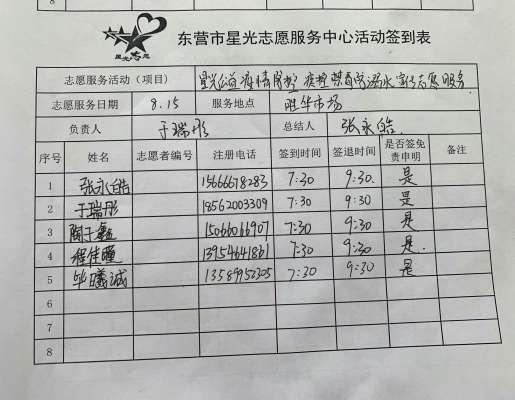 8
星光志愿
东营市星光志愿服务中心活动签到表
志愿服务活动（项目） 星光公益 疫情防控 服务
志愿服务日期 8.15 服务地点 胜华市场
负责人 于瑞彤 总结人 张永皓
序号 姓名 志愿者编号 注册电话 签到时间 签退时间 是否签免责申明 备注
1 张永皓 15666678283 7:30 9:30 是
2 于瑞彤 18562003309 7:30 9:30 是
3 15066066907 7:30 9:30 是
4 程佳瞳 13954641861 7:30 9:30 是
5 毕曦诚 13589952305 7:30 9:30 是
6
7
8